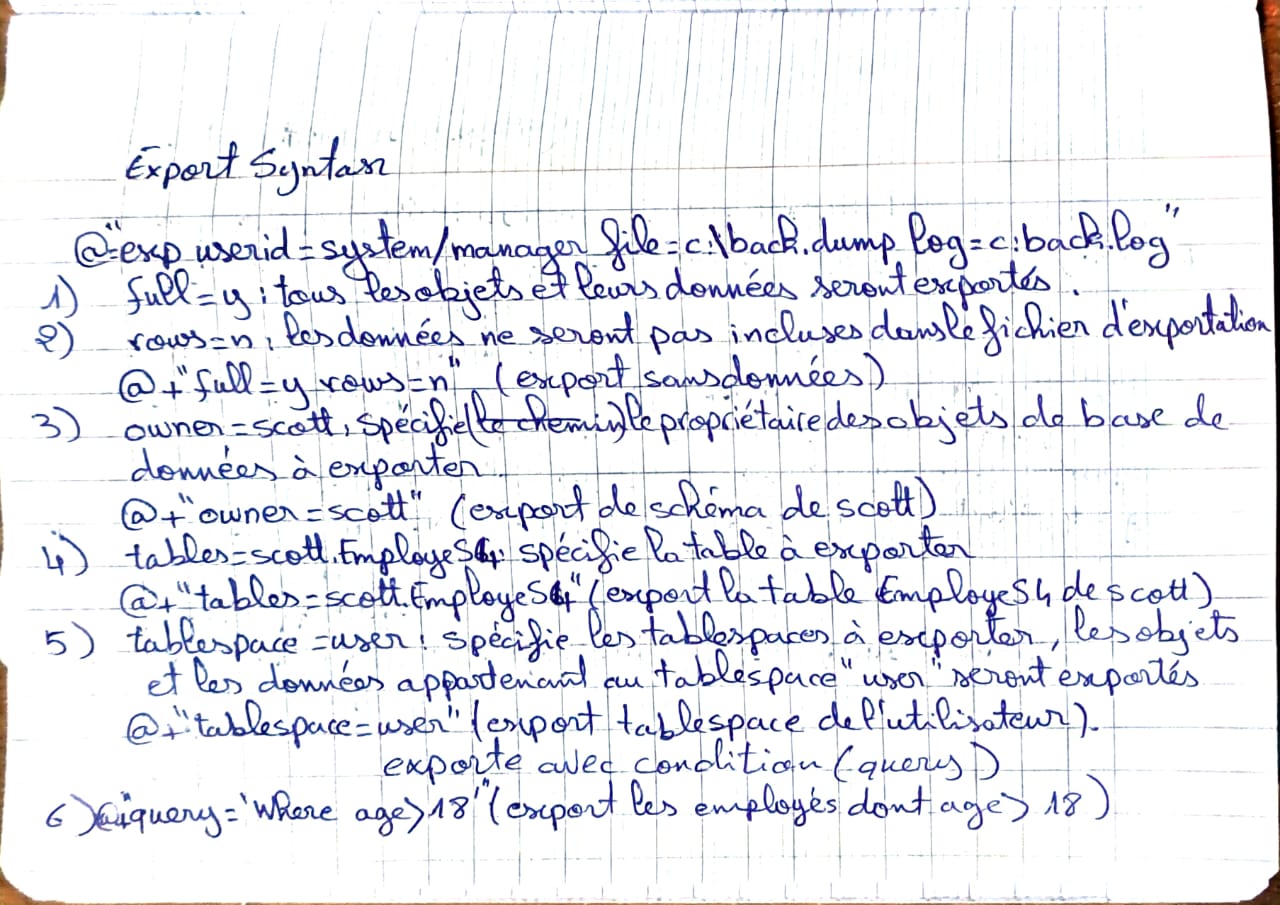 Export Syntax
@="exp userid=system/manager file=c:\back.dump log=c:back.log"
1) full=y : tous les objets et leurs données seront exportés.
2) rows=n, les données ne seront pas incluses dans le fichier d'exportation
@+"full=y rows=n" (export sans données)
3) owner=scott, spécifie (le chemin) le propriétaire des objets de base de
données à exporter
@+"owner=scott" (export de schéma de scott)
4) tables=scott.EmployeS4: spécifie la table à exporter
@+"tables=scott.EmployeS4" (export la table EmployeS4 de scott)
5) tablespace=user: spécifie les tablespaces à exporter, les objets
et les données appartenant au tablespace "user" seront exportés
@+"tablespace=user" (export tablespace de l'utilisateur).
exporte avec condition (query)
6) @+"query='Where age>18'" (export les employés dont age> 18)